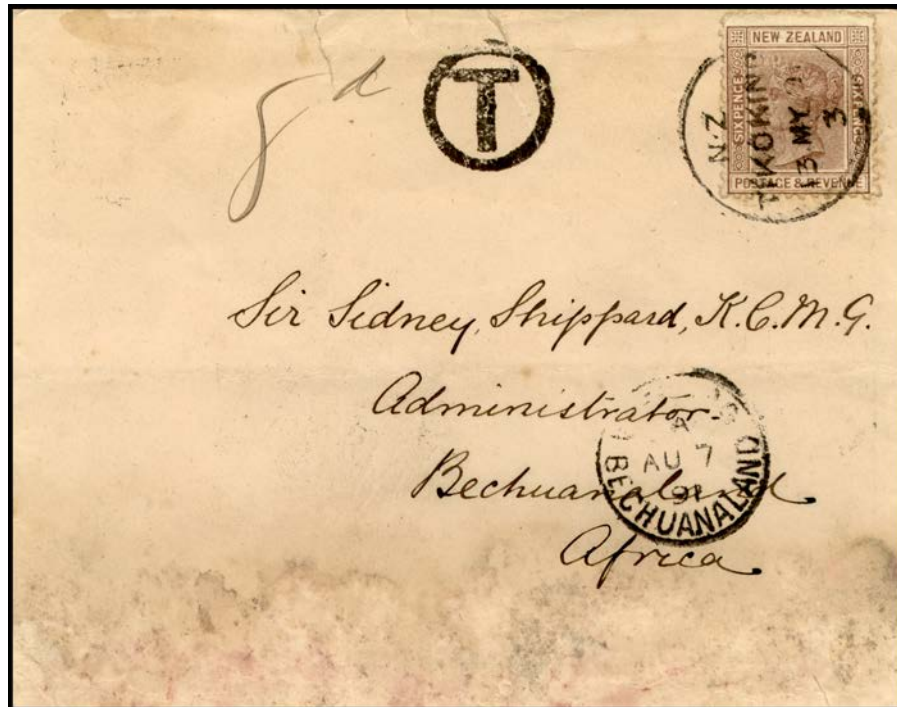 8d
T
NEW ZEALAND
SIXPENCE
SIXPENCE
POSTAGE & REVENUE
N.Z
3 MY
3
Sir Sidney Shippard, K.C.M.G.
Administrator
Bechuanaland
Africa
A
AU 7
91
BECHUANALAND